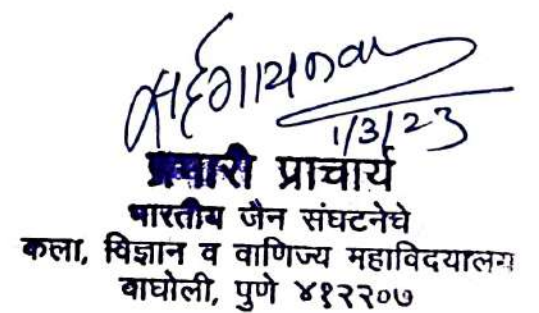 1/3/23
प्रभारी प्राचार्य
भारतीय जैन संघटनेचे
कला, विज्ञान व वाणिज्य महाविदयालय
वाघोली, पुणे ४१२२०७